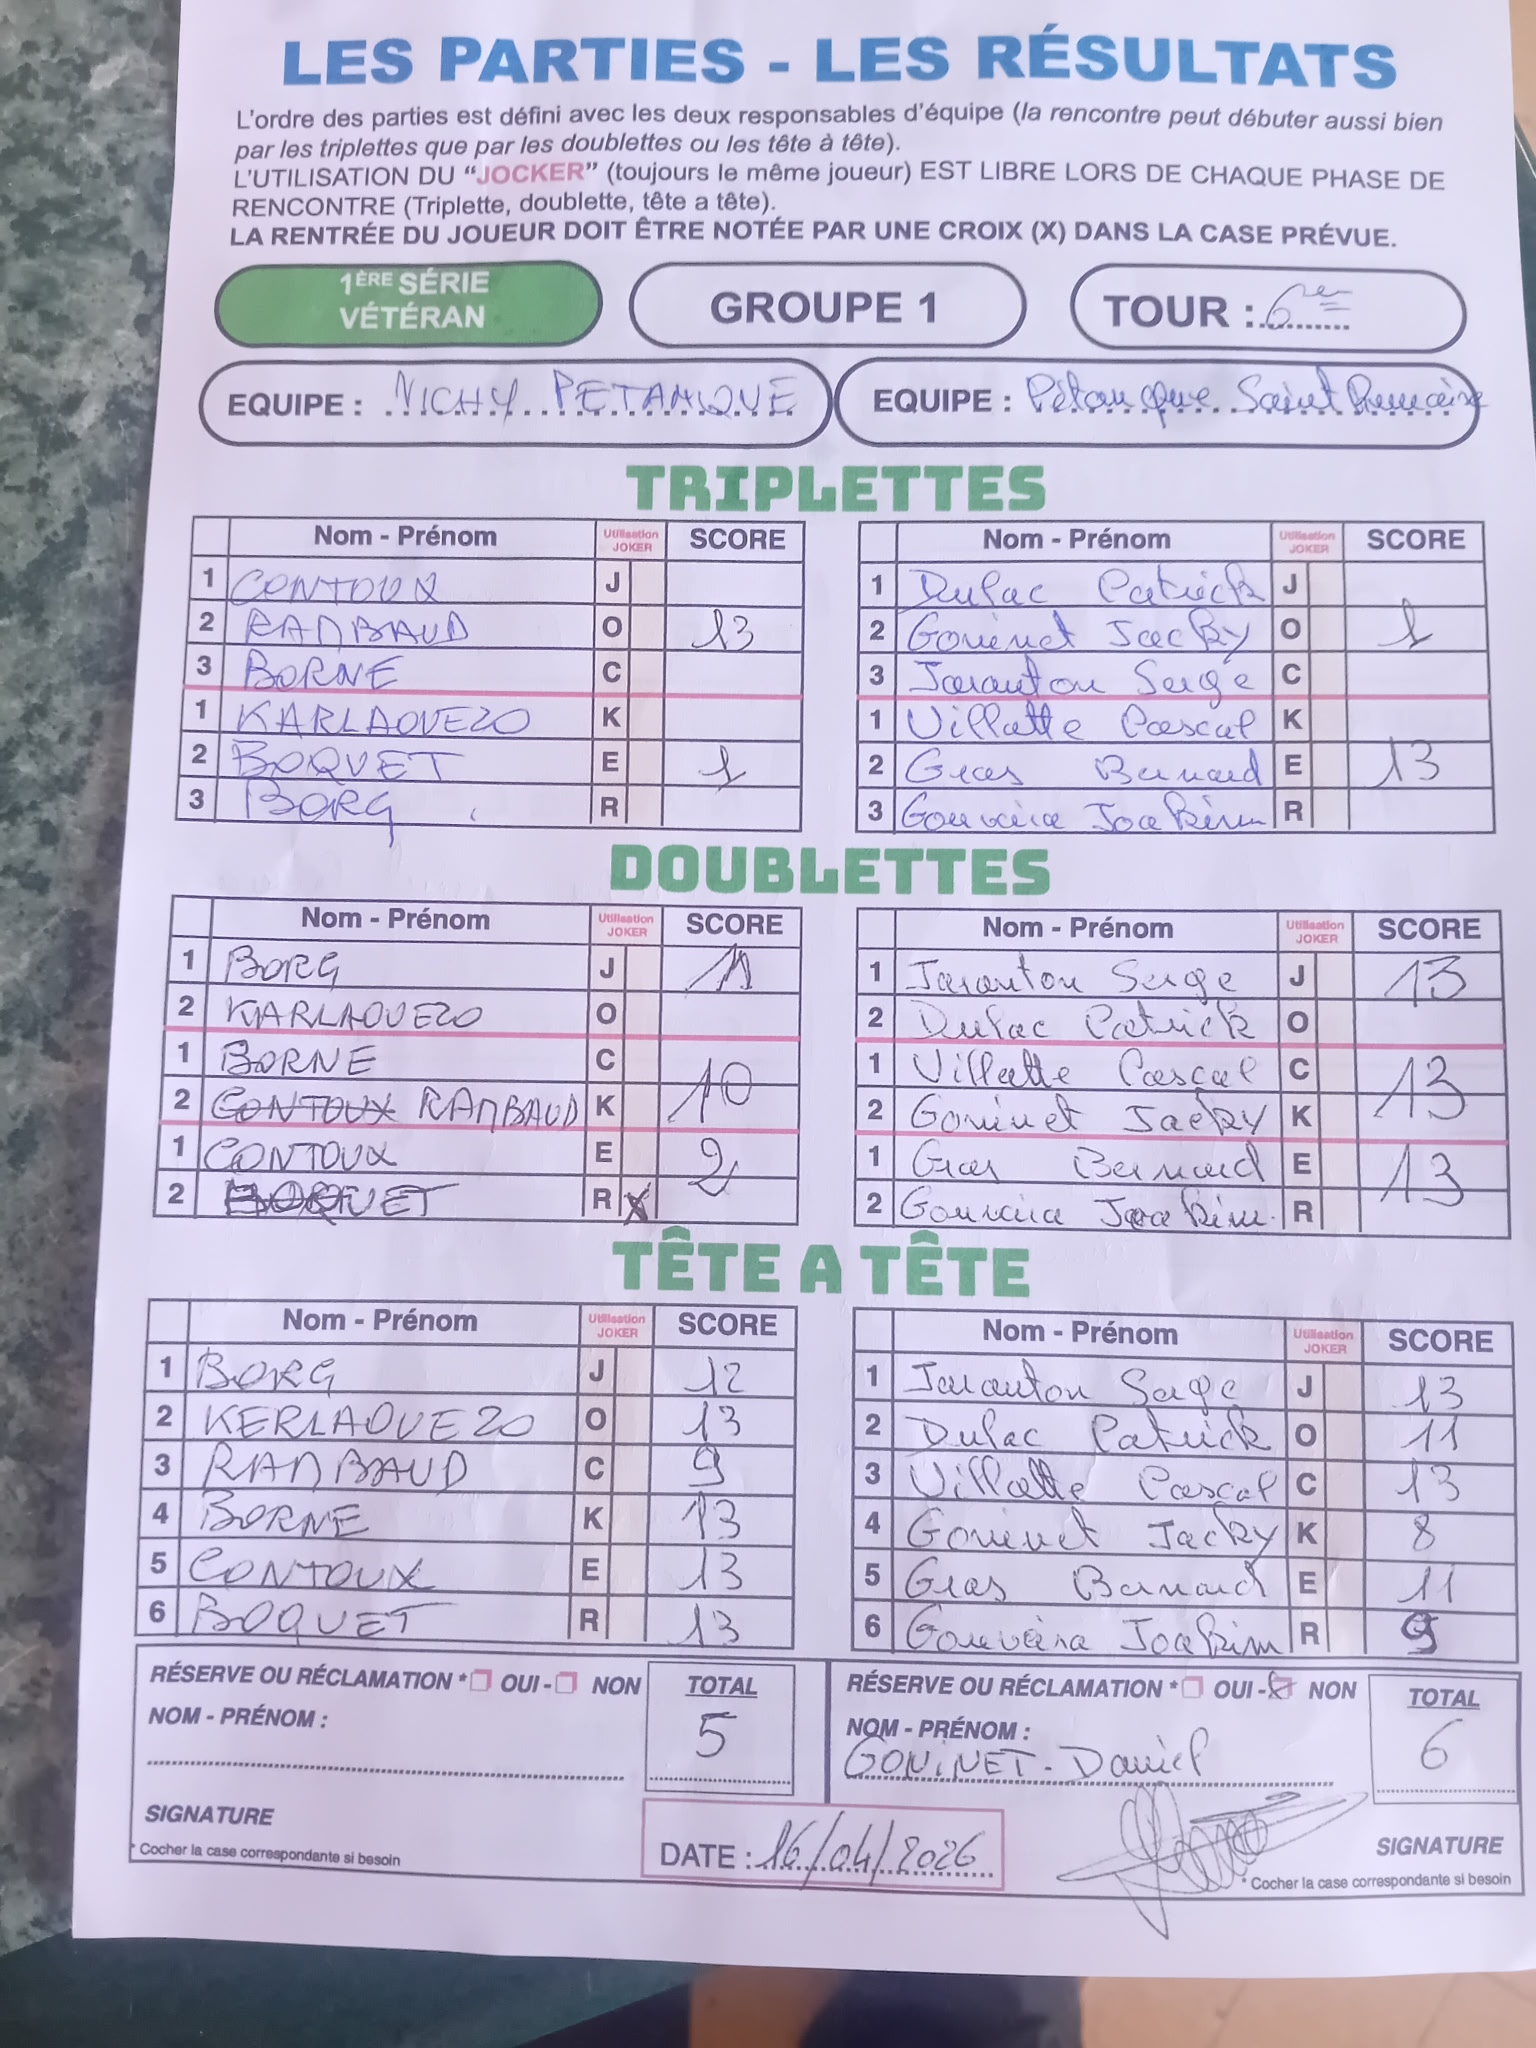 LES PARTIES - LES RÉSULTATS
L'ordre des parties est défini avec les deux responsables d'équipe (la rencontre peut débuter aussi bien
par les triplettes que par les doublettes ou les tête à tête).
L'UTILISATION DU "JOCKER" (toujours le même joueur) EST LIBRE LORS DE CHAQUE PHASE DE
RENCONTRE (Triplette, doublette, tête a tête).
LA RENTRÉE DU JOUEUR DOIT ÊTRE NOTÉE PAR UNE CROIX (X) DANS LA CASE PRÉVUE.
1ÈRE SÉRIE
VÉTÉRAN
GROUPE 1
TOUR : 6ème
EQUIPE : VICHY PETANQUE
EQUIPE : Pétanque Saint
TRIPLETTES
Nom - Prénom Utilisation JOKER SCORE
1 CONTOUX J
2 RAMBAUD O 13
3 BORNE C
1 KARLAOUEZO K
2 BOQUET E 1
3 BORG R
Nom - Prénom Utilisation JOKER SCORE
1 Dulac Patrick J
2 Goninet Jacky O 1
3 Jaranton Serge C
1 Villatte Pascal K
2 Gras Bernard E 13
3 Gouveira Joakim R
DOUBLETTES
Nom - Prénom Utilisation JOKER SCORE
1 BORG J 11
2 KARLAOUEZO O
1 BORNE C 10
2 CONTOUX RAMBAUD K
1 CONTOUX E 2
2 BOQUET R X
Nom - Prénom Utilisation JOKER SCORE
1 Jaranton Serge J 13
2 Dulac Patrick O
1 Villatte Pascal C 13
2 Goninet Jacky K
1 Gras Bernard E 13
2 Gouveira Joakim R
TÊTE A TÊTE
Nom - Prénom Utilisation JOKER SCORE
1 BORG J 12
2 KERLAOUEZO O 13
3 RAMBAUD C 9
4 BORNE K 13
5 CONTOUX E 13
6 BOQUET R 13
Nom - Prénom Utilisation JOKER SCORE
1 Jaranton Serge J 13
2 Dulac Patrick O 11
3 Villatte Pascal C 13
4 Goninet Jacky K 8
5 Gras Bernard E 11
6 Gouveira Joakim R 9
RÉSERVE OU RÉCLAMATION * OUI - NON
NOM - PRÉNOM :
TOTAL
5
SIGNATURE
* Cocher la case correspondante si besoin
RÉSERVE OU RÉCLAMATION * OUI - NON
NOM - PRÉNOM :
GONINET - Daniel
TOTAL
6
DATE : 16/04/2026
SIGNATURE
* Cocher la case correspondante si besoin